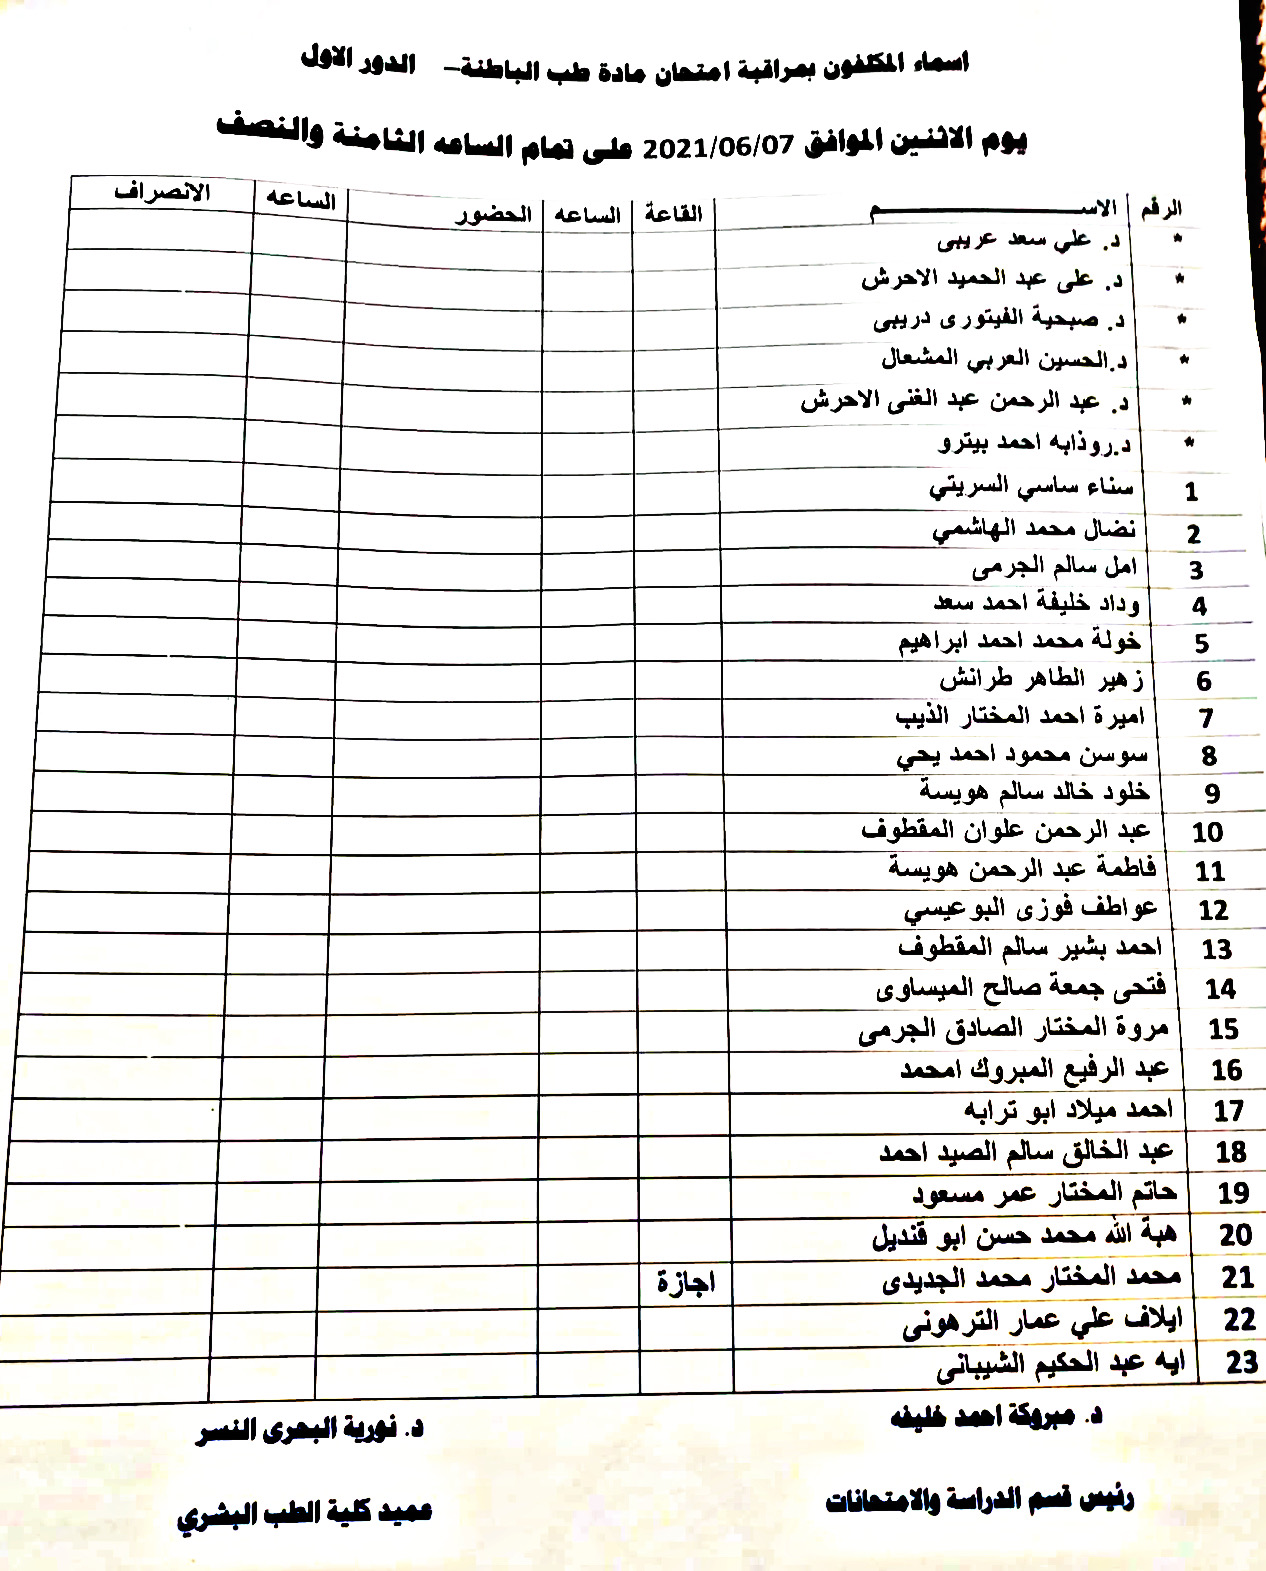 اسماء المكلفون بمراقبة امتحان مادة طب الباطنة– الدور الاول
يوم الاثنين الموافق 2021/06/07 على تمام الساعه الثامنة والنصف
الرقم الاســــــــــــم القاعة الساعه الحضور الساعه الانصراف
* د. علي سعد عريبى
* د. على عبد الحميد الاحرش
* د. صبحية الفيتورى دريبى
* د.الحسين العربي المشعال
* د. عبد الرحمن عبد الغنى الاحرش
* د.روذابه احمد بيترو
1 سناء ساسي السريتي
2 نضال محمد الهاشمي
3 امل سالم الجرمى
4 وداد خليفة احمد سعد
5 خولة محمد احمد ابراهيم
6 زهير الطاهر طرانش
7 اميرة احمد المختار الذيب
8 سوسن محمود احمد يحي
9 خلود خالد سالم هويسة
10 عبد الرحمن علوان المقطوف
11 فاطمة عبد الرحمن هويسة
12 عواطف فوزى البوعيسي
13 احمد بشير سالم المقطوف
14 فتحى جمعة صالح الميساوى
15 مروة المختار الصادق الجرمى
16 عبد الرفيع المبروك امحمد
17 احمد ميلاد ابو ترابه
18 عبد الخالق سالم الصيد احمد
19 حاتم المختار عمر مسعود
20 هبة الله محمد حسن ابو قنديل
21 محمد المختار محمد الجديدى اجازة
22 ايلاف علي عمار الترهونى
23 ايه عبد الحكيم الشيبانى
د. مبروكة احمد خليفه د. نورية البحرى النسر
رئيس قسم الدراسة والامتحانات عميد كلية الطب البشري